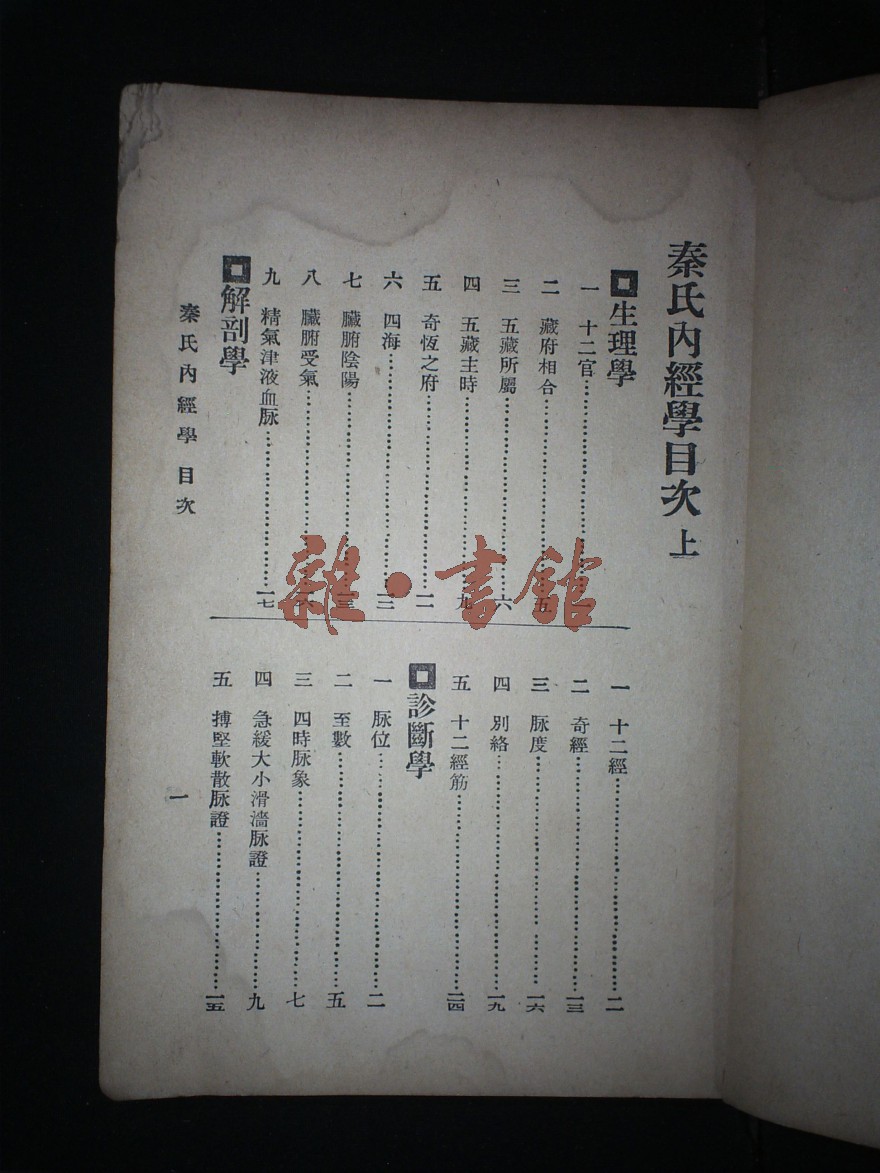 秦氏內經學目次 上
生理學
一 十二官……
二 藏府相合……五
三 五藏所屬……六
四 五藏主時……九
五 奇恆之府……一一
六 四海……一二
七 臟腑陰陽……一三
八 臟腑受氣……一六
九 精氣津液血脉……一七
解剖學
一 十二經……二
二 奇經……一三
三 脉度……一六
四 別絡……一九
五 十二經筋……二四
診斷學
一 脉位……二
二 至數……五
三 四時脉象……七
四 急緩大小滑濇脉證……九
五 搏堅軟散脉證……一五
秦氏內經學 目次
一
雜·書館